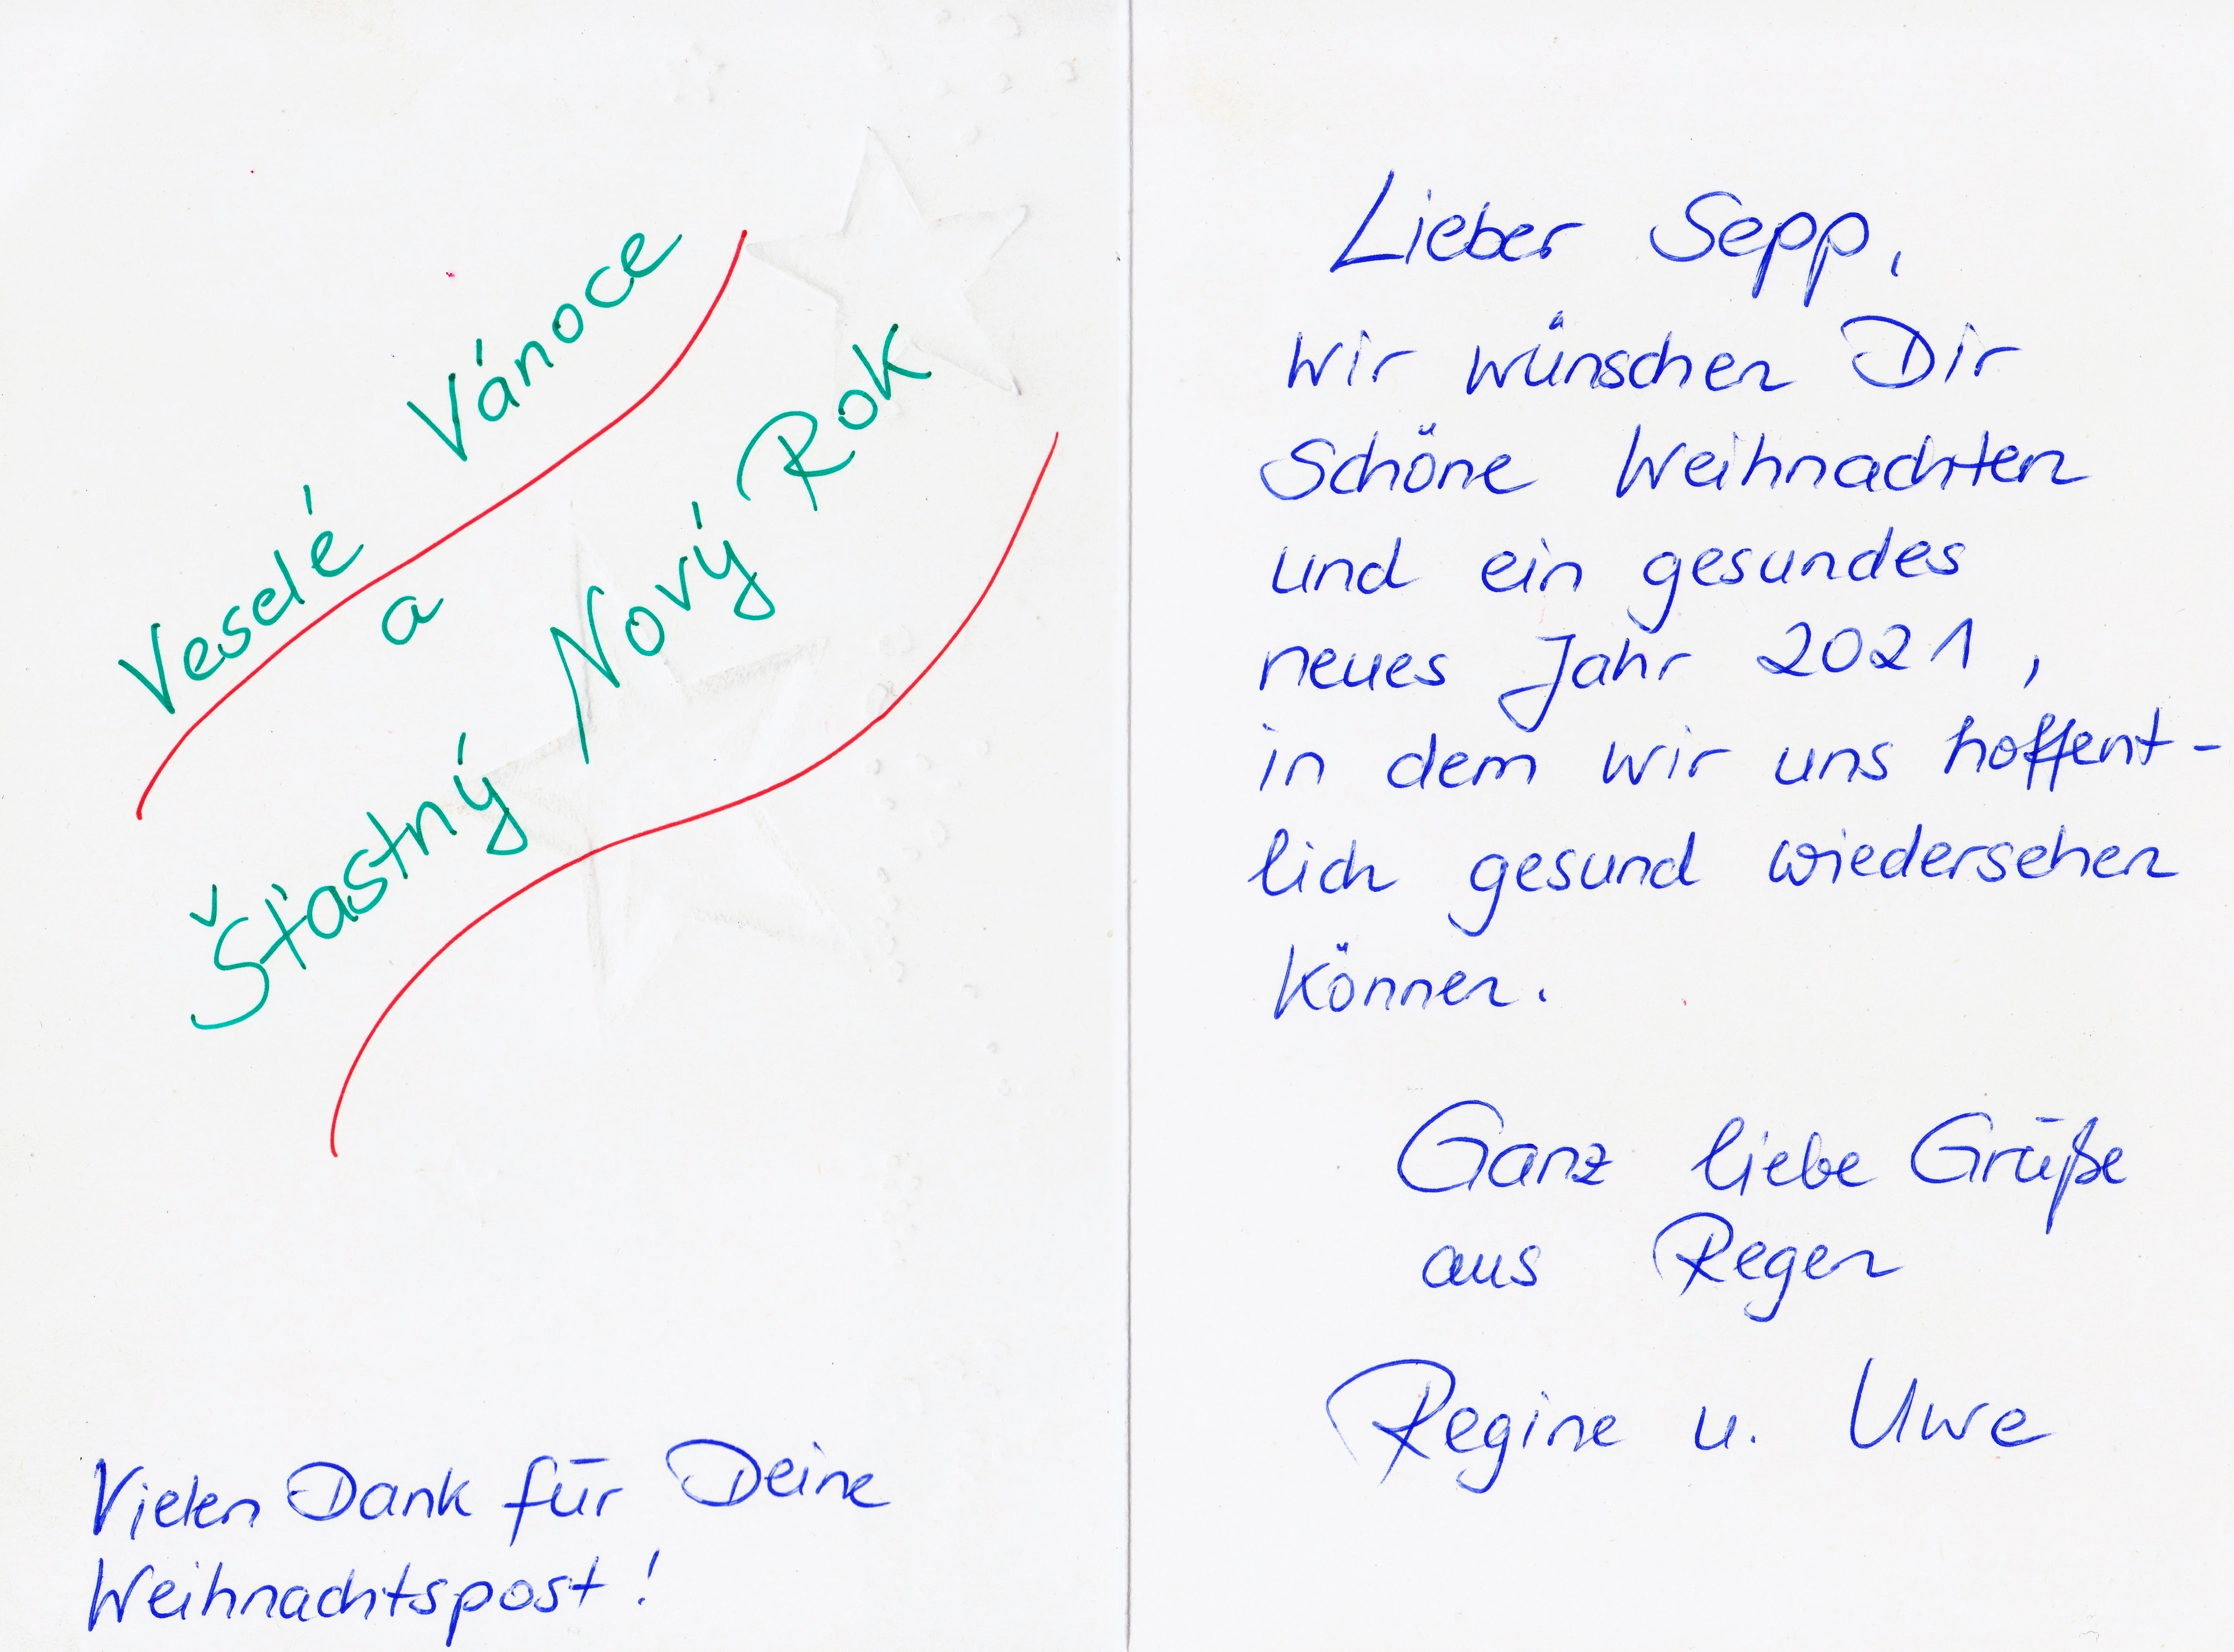 Veselé Vánoce
a
Šťastný Nový Rok
Vielen Dank für Deine
Weihnachtspost!
Lieber Sepp,
wir wünschen Dir
schöne Weihnachten
und ein gesundes
neues Jahr 2021,
in dem wir uns hoffent-
lich gesund wiedersehen
können.
Ganz liebe Grüße
aus Regen
Regine u. Uwe